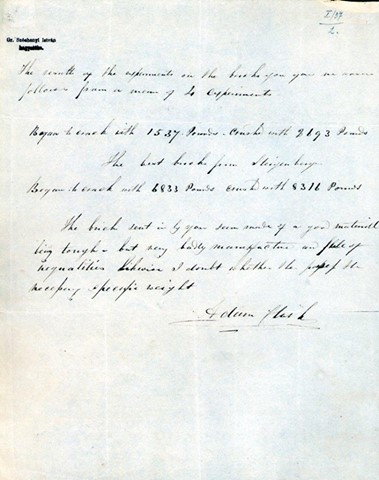 I/99
2.
Gr. Széchenyi István
hagyatéka.
The results of the experiments on the bricks you gave me are as
follows from a mean of 20 Experiments
Began to crack with 1537 Pounds - Crushd with 2193 Pounds
The best bricks from
Began to crack with 6833 Pounds crushd with 8316 Pounds
The brick sent in by you seem made of a good material
being tough - but very badly manufacture and full of
inequalities likewise I doubt whether the
necessary specific weight
Adam Clark